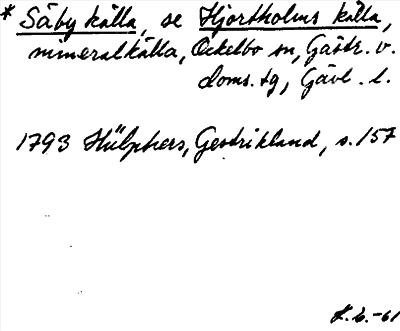 * Säby källa, se Hjortholms källa,
mineralkälla, Ockelbo sn, Gästr. v.
doms. tg, Gävl. l.
1793 Hülphers, Gestrikland, s. 157
K.L.-61